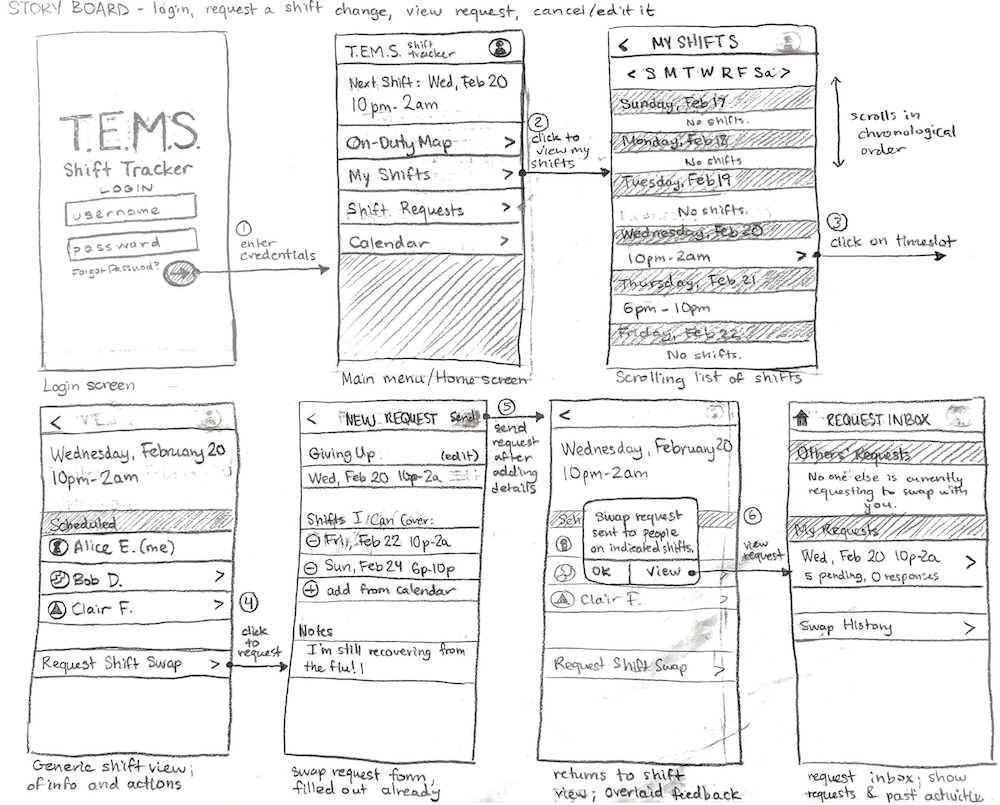 STORY BOARD - login, request a shift change, view request, cancel/edit it
T.E.M.S.
Shift Tracker
LOGIN
username
password
Forgot Password?
Login screen
① enter
credentials
T.E.M.S. shift
tracker
Next Shift: Wed, Feb 20
10pm-2am
On-Duty Map >
My Shifts >
Shift Requests >
Calendar >
Main menu/Home screen
② click to
view my
shifts
< MY SHIFTS
< S M T W R F Sa >
Sunday, Feb 17
No shifts.
Monday, Feb 18
No shifts
Tuesday, Feb 19
No shifts.
Wednesday, Feb 20
10pm-2am >
Thursday, Feb 21
6pm - 10pm
Friday, Feb 22
No shifts.
Scrolling list of shifts
scrolls in
chronological
order
③
click on timeslot
<
Wednesday, February 20
10pm-2am
Scheduled
Alice E. (me)
Bob D. >
Clair F. >
Request Shift Swap >
Generic shift view;
of info and actions
④
click
to
request
< NEW REQUEST Send
Giving Up: (edit)
Wed, Feb 20 10p-2a
Shifts I Can Cover:
Fri, Feb 22 10p-2a
Sun, Feb 24 6p-10p
add from calendar
Notes
I'm still recovering from
the flu! |
swap request form,
filled out already
⑤
send
request
after
adding
details
<
Wednesday, February 20
10pm-2am
Sch
Swap request
sent to people
on indicated shifts.
OK | View
Clair F. >
Request Shift Swap >
returns to shift
view; overlaid feedback
⑥
view
request
REQUEST INBOX
Others' Requests
No one else is currently
requesting to swap with
you.
My Requests
Wed, Feb 20 10p-2a >
5 pending, 0 responses
Swap History >
request inbox; show
requests & past activity